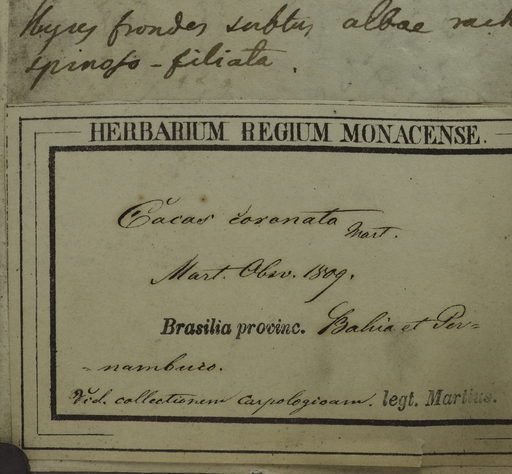 frondes subtus albae
spinoso-filiata.
HERBARIUM REGIUM MONACENSE.
Cocos coronata Mart.
Mart. Obsv. 1809.
Brasilia provinc. Bahia et Per=
=nambuco.
Vid. collectionem carpologicam. legt. Martius.